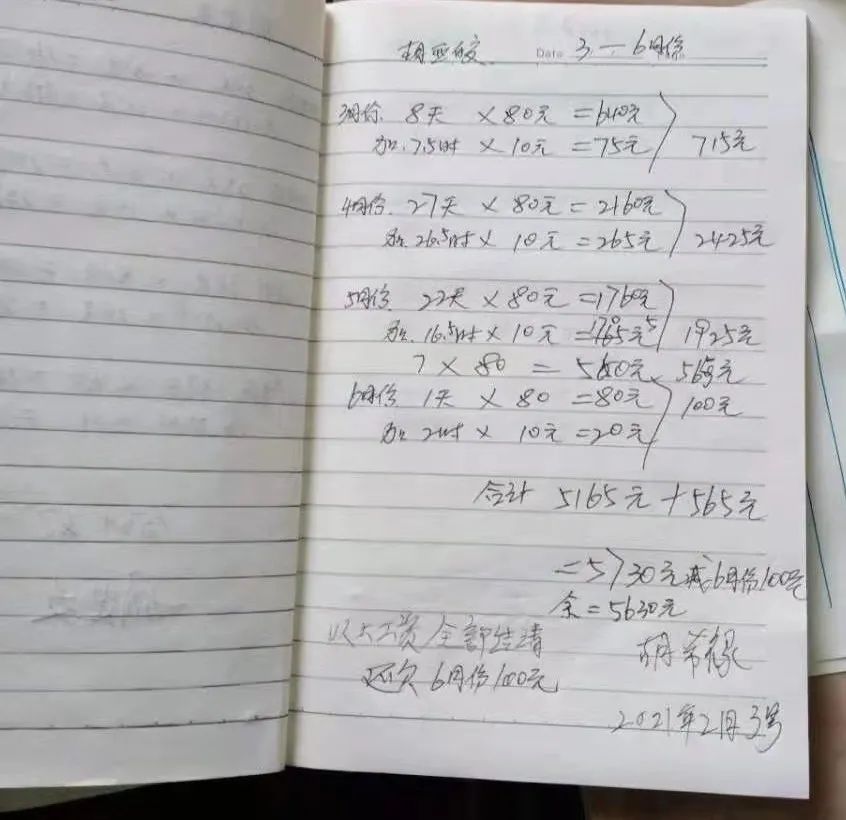 胡亚皎 Date 3—6月份
3月份. 8天 ×80元 =640元
加.7.5时 × 10元 =75元 715元
4月份. 27天 × 80元 = 2160元
加.26.5时 × 10元 =265元 2425元
5月份. 22天 × 80元 =1760元
加.16.5时 × 10元 =165元 1925元
7 × 80 = 560元 565元
6月份 1天 × 80 =80元 100元
加 2时 × 10元 =20元
合计 5165元 +565元
=5730元减6月份100元
余=5630元
以上工资全部结清 胡
还欠6月份100元
2021年2月3号